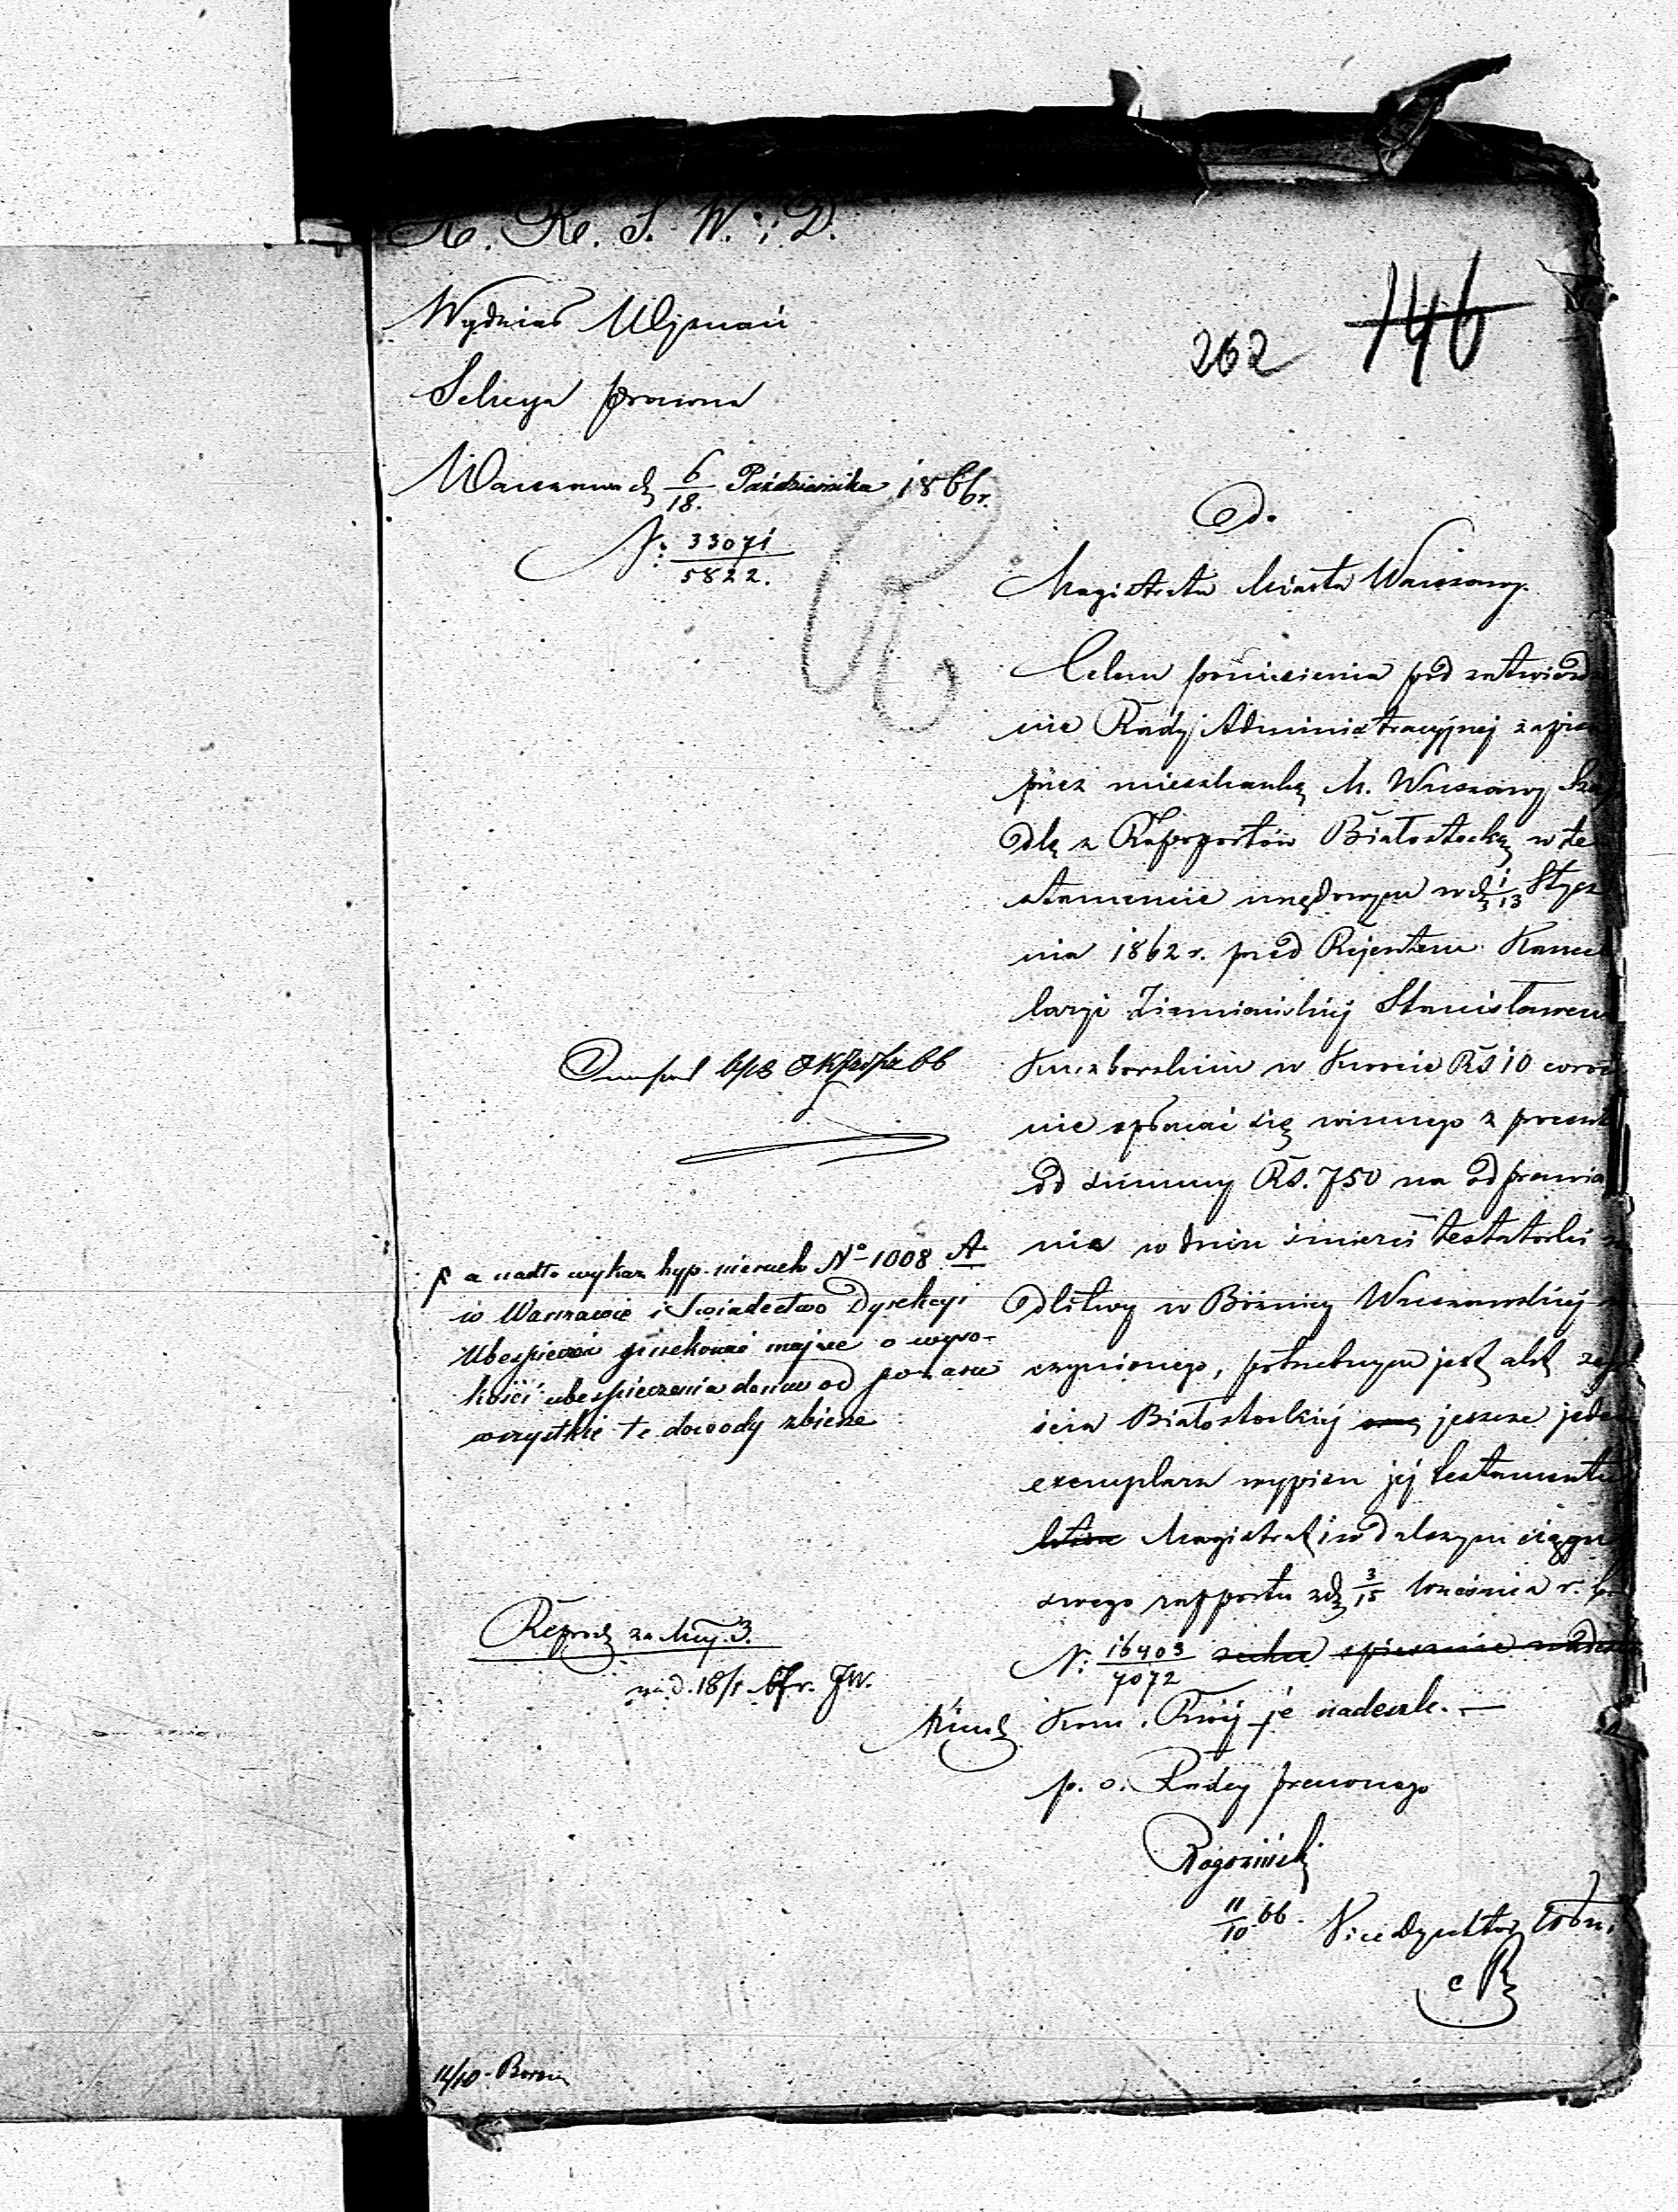 K. R. S. W. i D.
262 146
Wydział Wyznań
Sekcya prawna
Warszawa d. 6/18. Października 1866 r.
N: 33071/5822.
Do
Magistratu Miasta Warszawy.
Celem wniesienia pod zatwierdze
nie Rady Administracyjnej zapisu
przez mieszkankę M. Warszawy
dlę z Rapoportów Białostocką w te
stamencie urzędowym w d. 1/13 Stycz
nia 1862 r. przed Rejentem Kancel
laryi Ziemiańskiej Stanisławem
w kwocie Rs 10 coro
nie opłacać się winnego z procentu
od summy Rs. 750 na odprawia
nie w dniu śmierci testatorki
dlitwy w Bóżnicy Warszawskiej
czynionego, potrzebnym jest akt zej
ścia Białostockiej oraz jeszcze jeden
exemplarz wypisu jej testamentu
Magistrat w dalszym ciągu
swego rapportu z d. 3/15 Września r. b.
N: 16403/7072
Kom. Rząj je nadeszle. —
p. o. Radcy prawnego
Rogoziński
11/10 66. Vice Dyrektor
a nadto wykaz hyp. nieruch. No 1008 A.
w Warszawie i Świadectwo Dyrekcyi
Ubezpieczeń przekonać mające o wyso-
kości ubezpieczenia domu od pożaru
wszystkie te dowody zbierze
Reprod. za Mcy. 3.
18/1 67 r. JW.
11/10